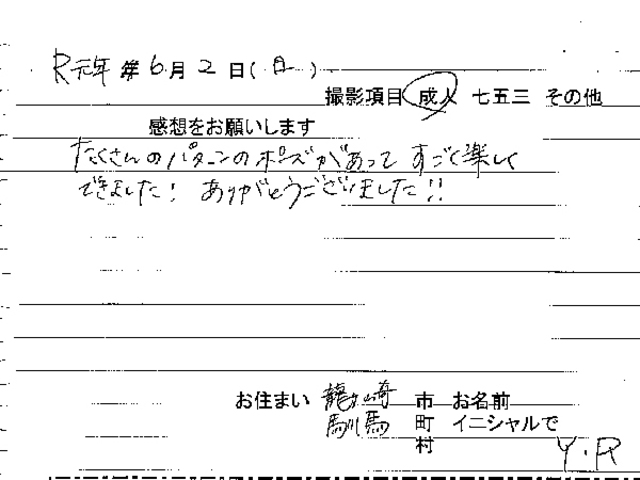 R元年 年6月2日(日)
撮影項目 成人 七五三 その他
感想をお願いします
たくさんのパターンのポーズがあって すごく楽しく
できました! ありがとうございました!!
お住まい 龍ヶ崎 市 お名前
馴馬 町 イニシャルで
村 Y.R